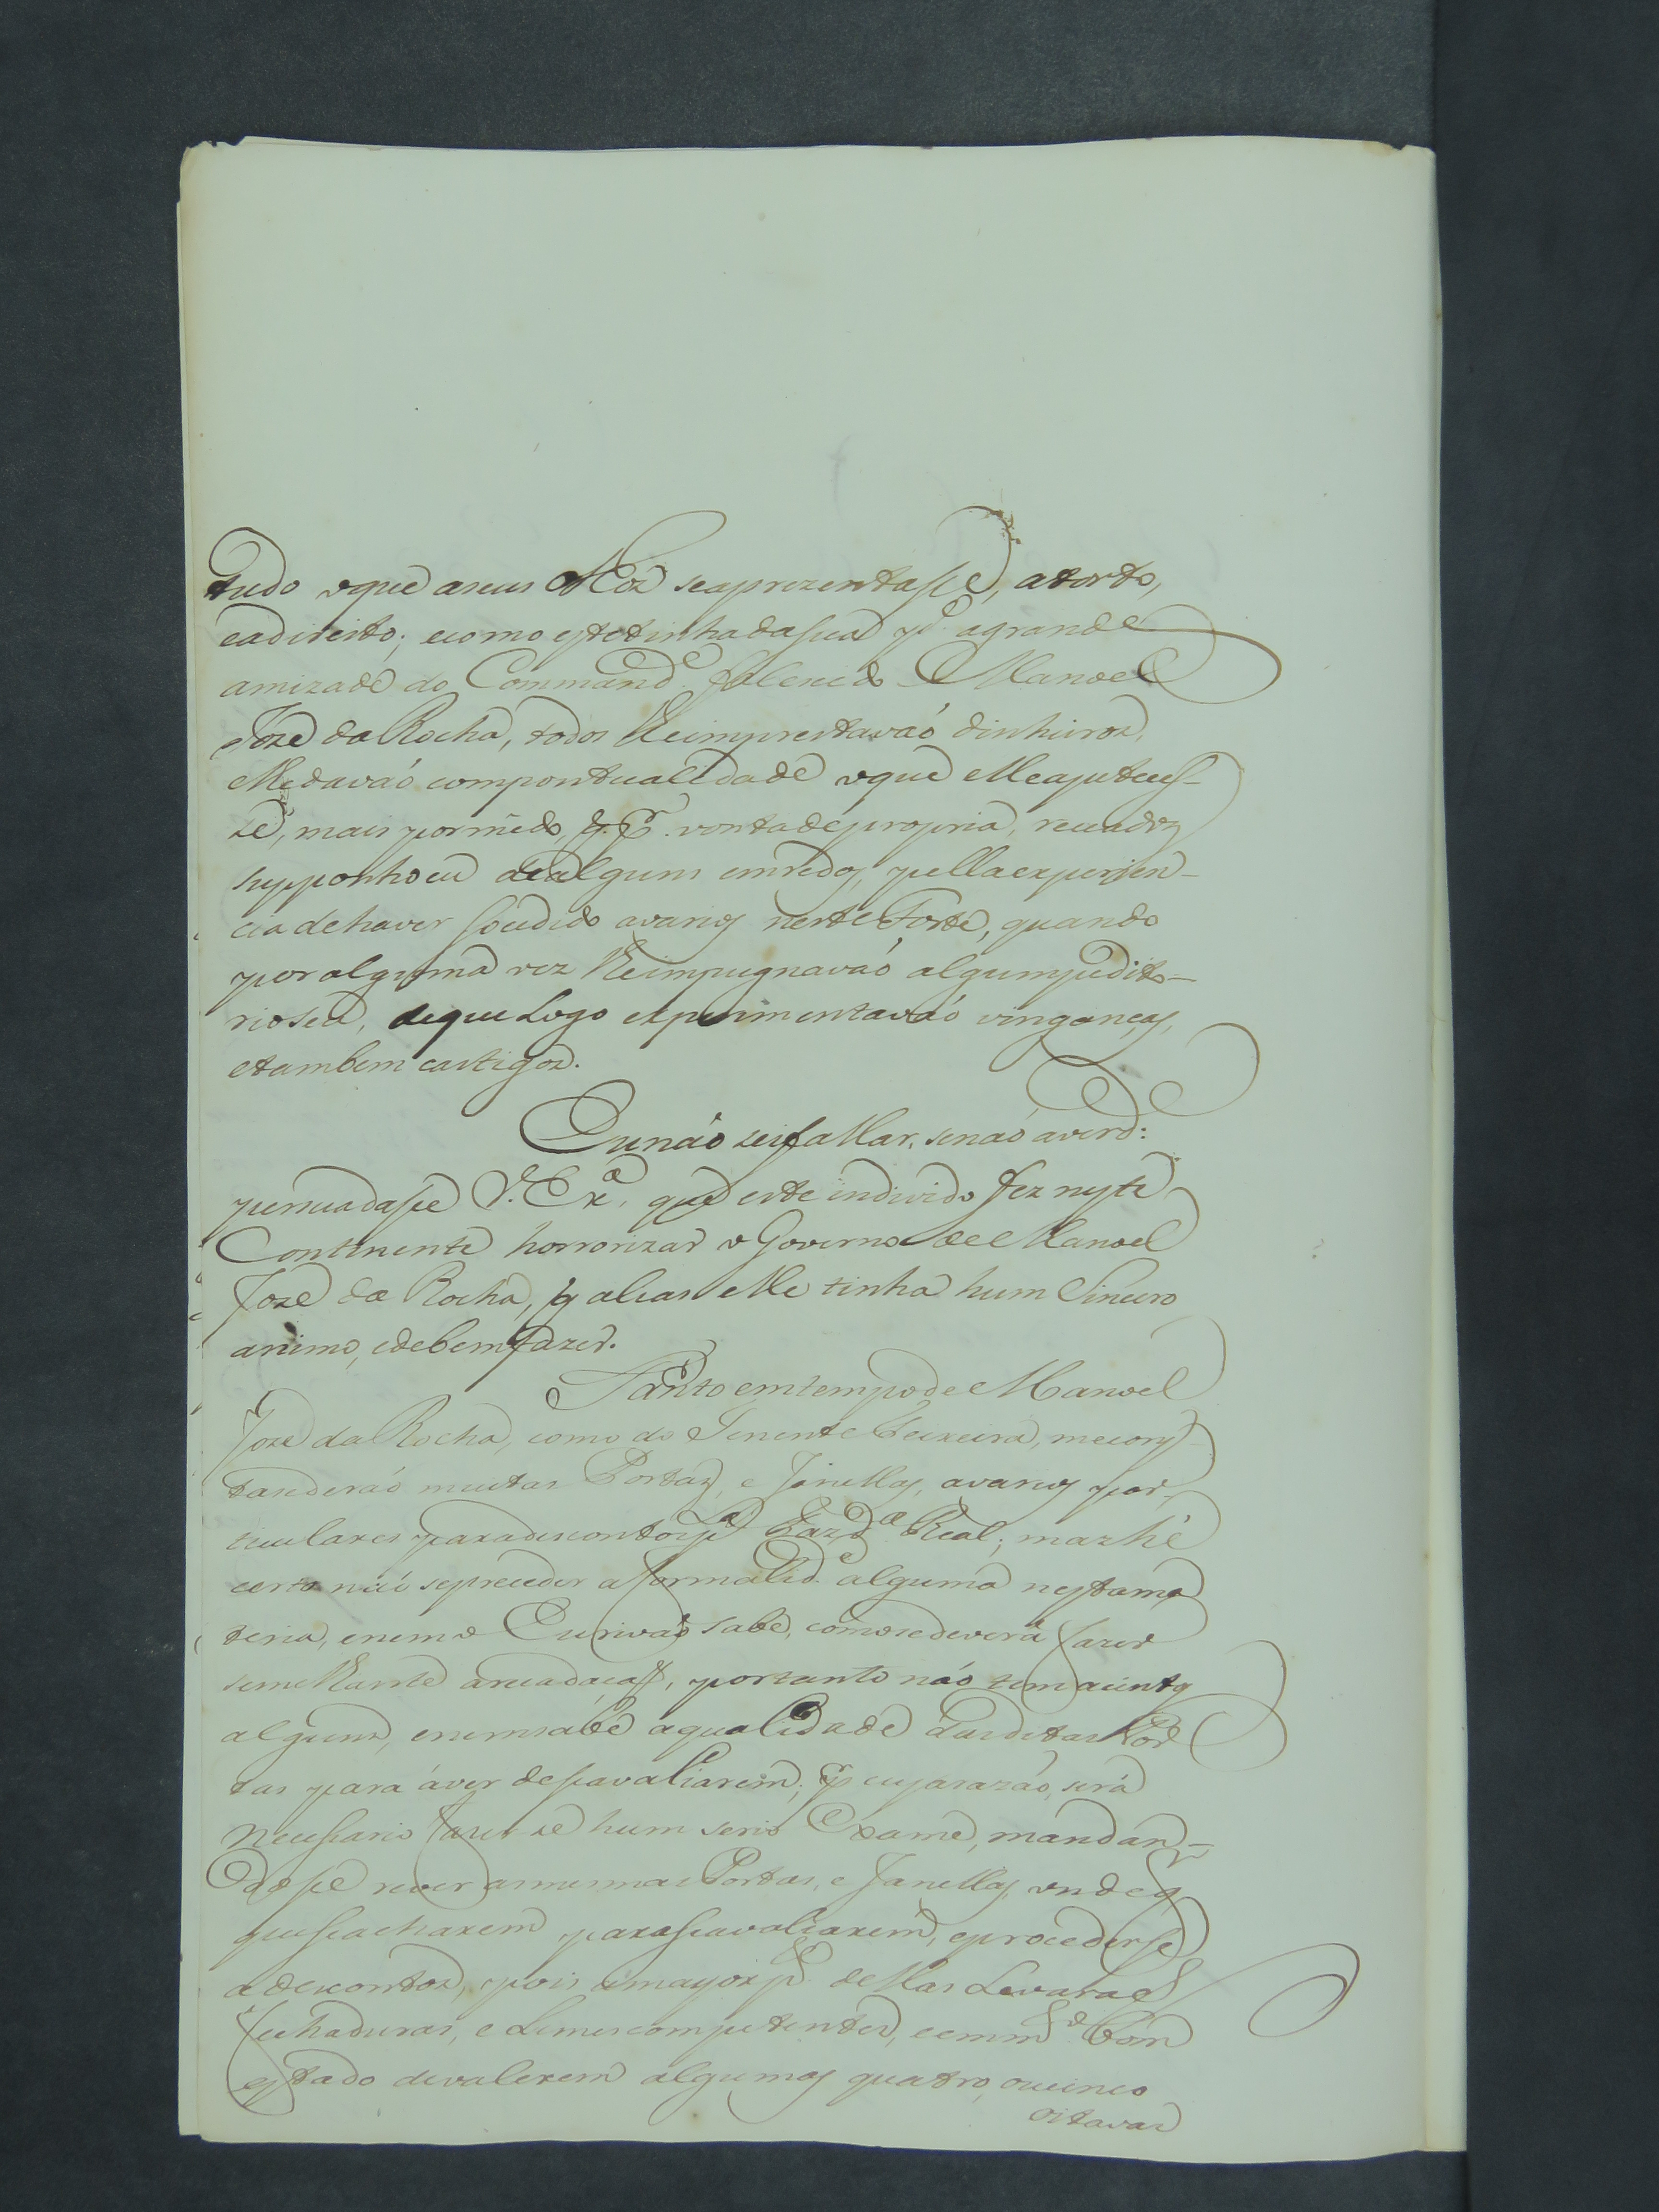 tudo oque aseus olhoz seaprezentasse, atorto,
eadireito; ecomo estetinhadasua p.e agrande
amizade do Command.e falecido Manoel
Joze da Rocha, todos lheimprestavaó dinheiroz,
elhedavaó compontualidade oque elleapetecес-
se, mais pormedo, q. p.r vontadepropria, receadoz
supponhoeu dealguns enredoz, pellaexperien-
cia dehaver socedido avarioz neste Forte, quando
por alguma vez lheimpugnavaó algumpedito-
rioseu, deque Logo experimentavaó vinganças,
etambem castigoz.
Eu náo seifallar, senaó averd.:
persuadasse V. Ex.a, que este individo fez neste
Continente horrorizar o Governo de Manoel
Joze da Rocha, q alias elle tinha hum Sincero
animo, edebemfazer.
Tanto emtempode Manoel
Joze da Rocha, como do Tenente Teixeira, mecons-
tasederaó muitas Portaz, e Janellas, avarios par-
ticulares paradescontos p.a Faz.da Real; mas hé
certo náo seproceder aformalid.e alguma nestama
teria, enem o Escrivaó sabe, comosedeverá fazer
semelhante arecadacaõ, portanto náo tem acento
algum, enemsabé aqualidade dasditas Por
tas para áver desseavaliarem; p.r cujarazáo, será
Necessario fazerse hum serio Exame, mandan-
dosse rever asmesmas Portas, e Janellas, onde q
quesseacharem, parasseavaliarem, eprocedersse
adescontos, pois amayor p.e dellas Levarao
fechaduras, e Lemescompetentes, eem m.to bom
estado devalerem algumas quatro, oucinco
oitavas